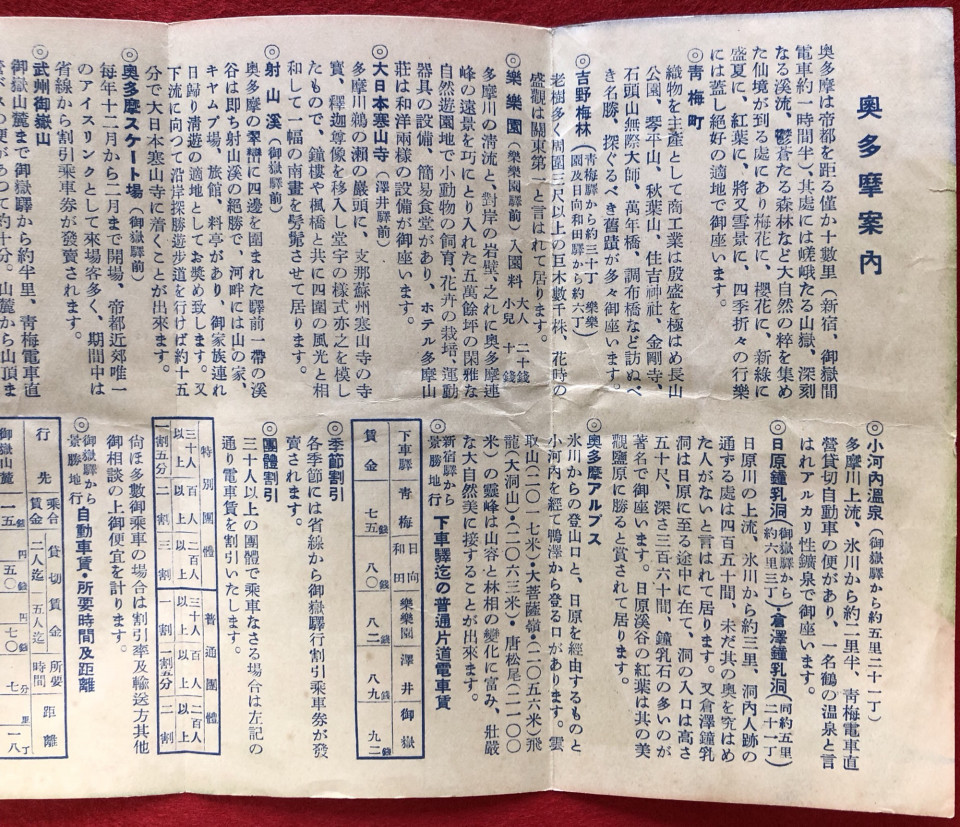 奥多摩案內
奥多摩は帝都を距る僅か十數里（新宿、御嶽間
電車約一時間半）、其處には嵯峨たる山嶽、深刻
なる溪流、鬱蒼たる森林など大自然の粹を集め
た仙境が到る處にあり梅花に、櫻花に、新綠に
盛夏に、紅葉に、將又雪景に、四季折々の行樂
には蓋し絕好の適地で御座います。
◎靑梅町
織物を主產として商工業は殷盛を極はめ長山
公園、琴平山、秋葉山、住吉神社、金剛寺、
石頭山無際大師、萬年橋、調布橋など訪ぬべ
き名勝、探ぐるべき舊蹟が多々御座います。
◎吉野梅林（靑梅驛から約三十丁 樂樂
園及日向和田驛から約六丁）
老樹多く周圍三尺以上の巨木數千株、花時の
盛觀は關東第一と言はれて居ります。
◎樂樂園（樂樂園驛前）入園料 大人 二十錢
小兒 十錢
多摩川の淸流と、對岸の岩壁、之れに奥多摩連
峰の遠景を巧にとり入れた五萬餘坪の閑雅な
自然遊園地で小動物の飼育、花卉の栽培、運動
器具の設備、簡易食堂があり、ホテル多摩山
莊は和洋兩樣の設備が御座います。
◎大日本寒山寺（澤井驛前）
多摩川鵜の瀨の巖頭に、支那蘇州寒山寺の寺
寶、釋迦尊像を移入し堂宇の樣式亦之を模し
たもので、鐘樓や楓橋と共に四圍の風光と相
和して一幅の南畫を髣髴させて居ります。
◎射山溪（御嶽驛前）
奥多摩の翠巒に四邊を圍まれた驛前一帶の溪
谷は即ち射山溪の絕勝で、河畔には山の家、
キヤムプ場、旅館、料亭があり、御家族連れ
日歸り淸遊の適地としてお奬め致します。又
下流に向つて沿岸探勝遊步道を行けば約十五
分で大日本寒山寺に着くことが出來ます。
◎奥多摩スケート場（御嶽驛前）
每年十二月から二月まで開場、帝都近郊唯一
のアイスリンクとして來場客多く、期間中は
省線から割引乘車券が發賣されます。
◎武州御嶽山
御嶽山麓まで御嶽驛から約半里、靑梅電車直
營バスの便があつて約十分。山麓から山頂ま
◎小河內溫泉（御嶽驛から約五里二十一丁）
多摩川上流、氷川から約二里半、靑梅電車直
營貸切自動車の便があり、一名鶴の溫泉と言
はれアルカリ性鑛泉で御座います。
◎日原鐘乳洞（御嶽驛から
約六里三丁）・倉澤鐘乳洞（同約五里
二十一丁）
日原川の上流、氷川から約三里、洞內人跡の
通ずる處は四百五十間、未だ其の奧を究はめ
た人がないと言はれて居ります。又倉澤鐘乳
洞は日原に至る途中に在て、洞の入口は高さ
五十尺、深さ三百六十間、鐘乳石の多いのが
著名で御座います。日原溪谷の紅葉は其の美
觀鹽原に勝ると賞されて居ります。
◎奥多摩アルプス
氷川からの登山口と、日原を經由するものと
小河內を經て鴨澤から登る口があります。雲
取山（二〇一七米）・大菩薩嶺（二〇五六米）飛
龍（大洞山）・二〇六三米・唐松尾（二一〇〇
米）の靈峰は山容と林相の變化に富み、壯嚴
な大自然美に接することが出來ます。
◎新宿驛から
景勝地行 下車驛迄の普通片道電車賃
下車驛 靑梅 日向和田 樂樂園 澤井 御嶽
賃金 七五錢 八〇 八二 八九 九二錢
◎季節割引
各季節には省線から御嶽驛行割引乘車券が發
賣されます。
◎團體割引
三十人以上の團體で乘車なさる場合は左記の
通り電車賃を割引いたします。
特別團體 普通團體
三十人以上 百人以上 二百人以上 三十人以上 百人以上 二百人以上
一割五分 二割 三割 一割 一割五分 二割
尙ほ多數御乘車の場合は割引率及輸送方其他
御相談の上御便宜を計ります。
◎御嶽驛から
景勝地行 自動車賃・所要時間及距離
行先 乘合賃金 貸切賃金 二人迄 五人迄 所要時間 距離
御嶽山麓 一五錢 五〇 七〇錢 七分 一八丁